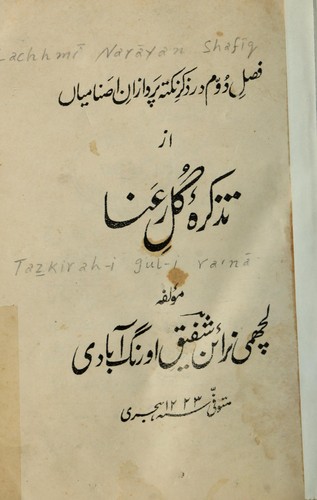 Lachhmī Narāyan Shafīq
فصلِ دُوم در ذکرِ نکتہ پردازانِ اصنامیاں
از
تذکرۂ گُلِ رعنا
Tazkirah-i gul-i ra'nā
مولفہ
لچھمی نرائن شفیق اورنگ آبادی
متوفی ۱۲۲۳ سنہ ہجری